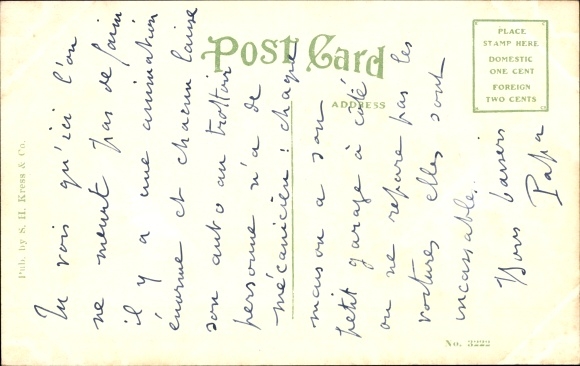 POST CARD
ADDRESS
PLACE
STAMP HERE
DOMESTIC
ONE CENT
FOREIGN
TWO CENTS
Pub. by S. H. Kress & Co.
No. 3222
Tu vois qu'ici l'on
ne meurt pas de faim
il y a une animation
énorme et chacun laisse
son auto au trottoir
personne n'a de
mécanicien ! chaque
maison a son
petit garage à côté
on ne repare pas les
voitures elles sont
incassables..
Bons baisers
Papa